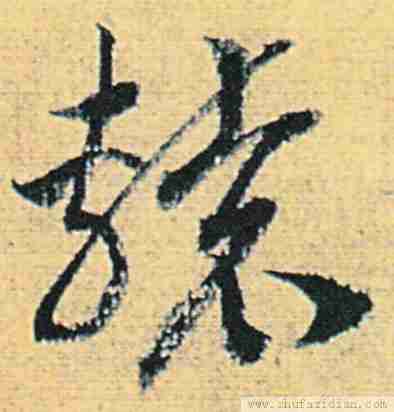 轅
www.shufazidian.com